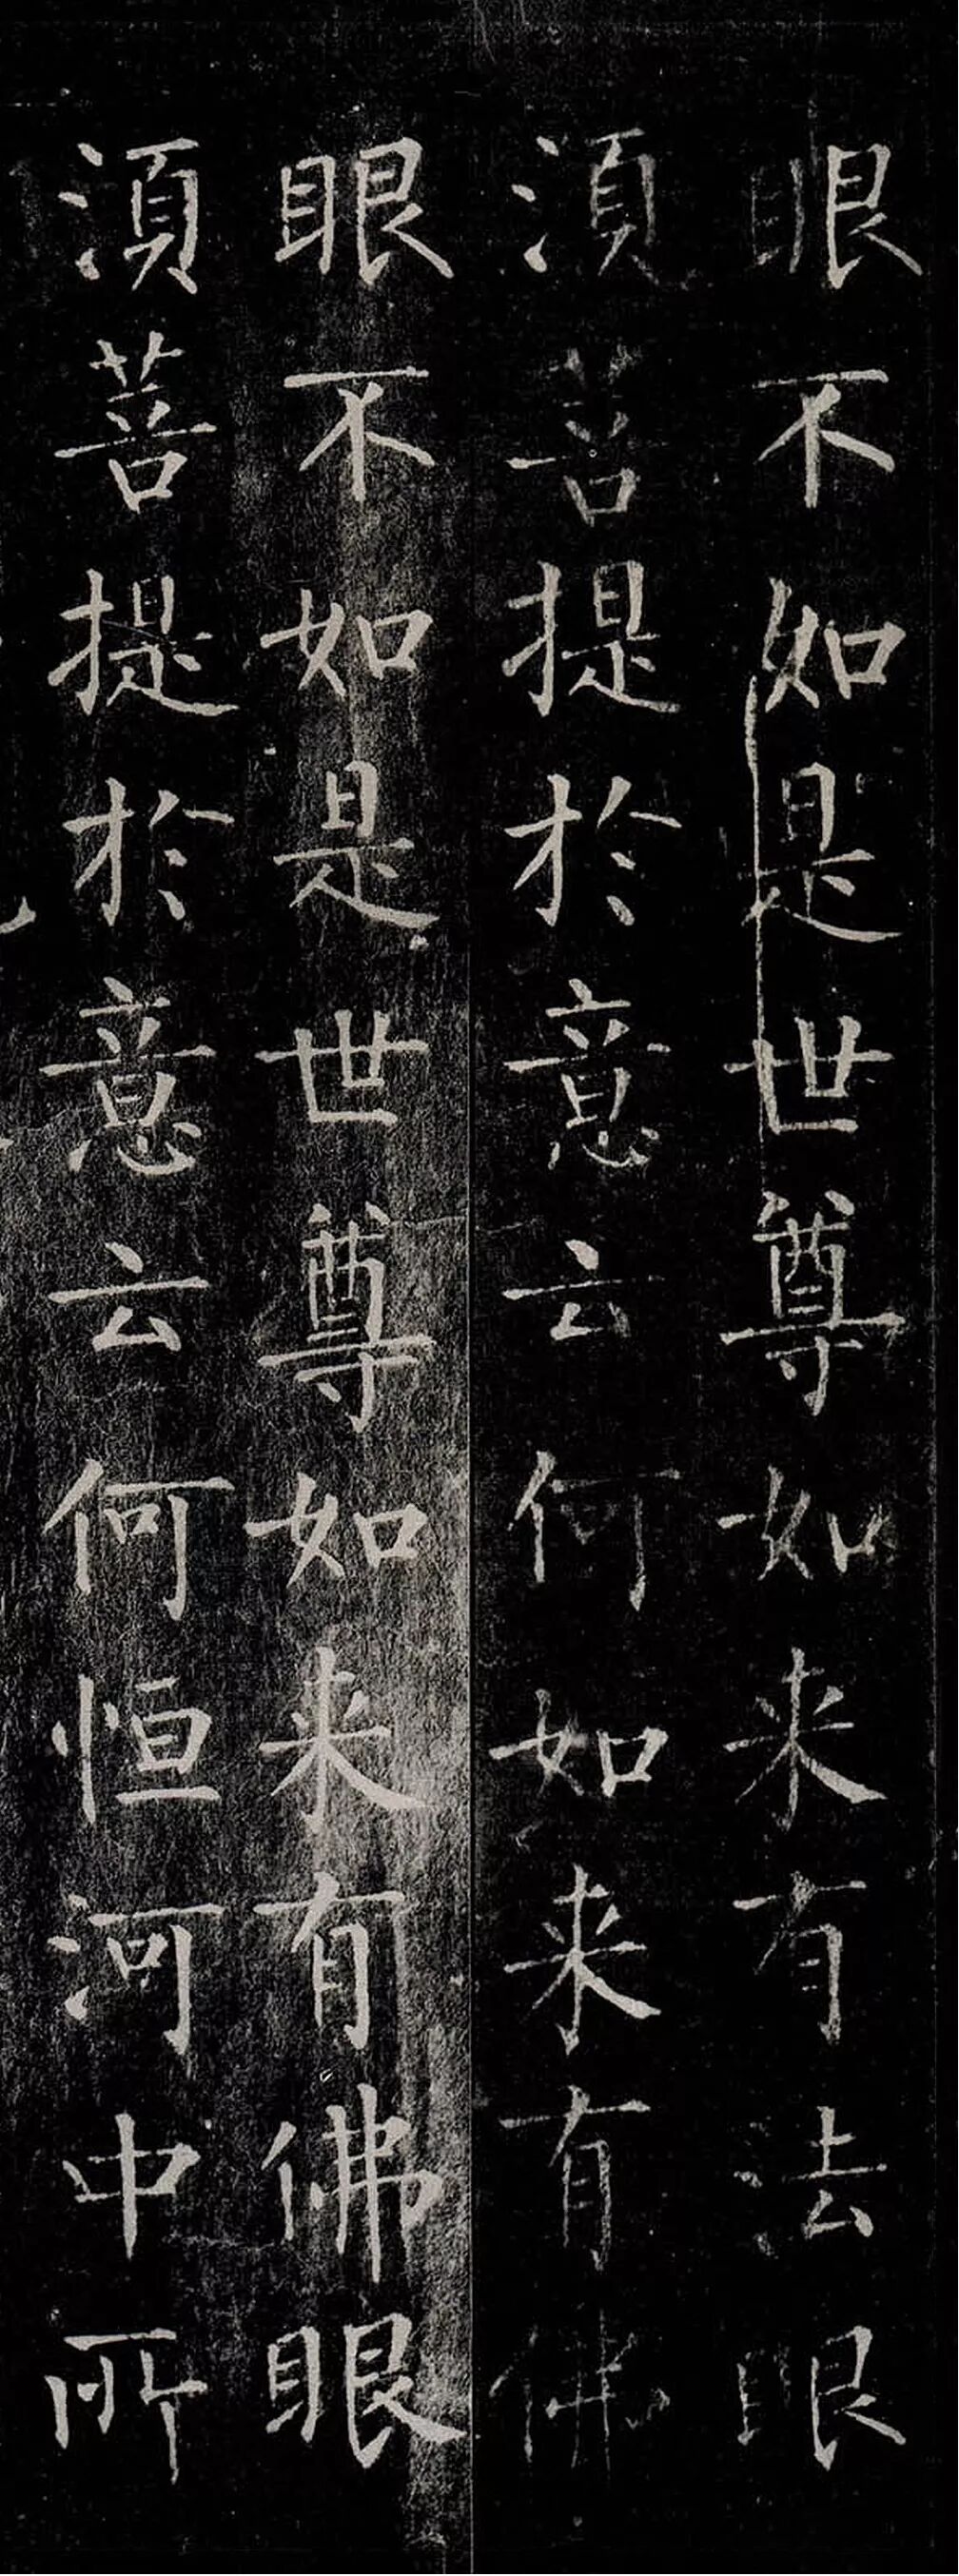 眼不如是世尊如来有法眼
湏菩提於意云何如来有佛
眼不如是世尊如来有佛眼
湏菩提於意云何恒河中所